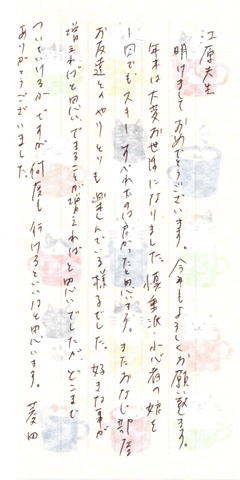 江原先生
明けまして おめでとうございます。今年もよろしくお願い致します。
年末は大変お世話になりました。慎重派・小心者の娘を
1回でもスキーすべれたのは良かったと思います。またおなじ部屋
お友達とのやりとりも 進んでいる様子でした。好きな事が
増えればと思い、できることが増えればと思いでしたが、どこまで
ついていけるか ですが 何度も 行けるといいなと思います。 菱田
ありがとうございました。